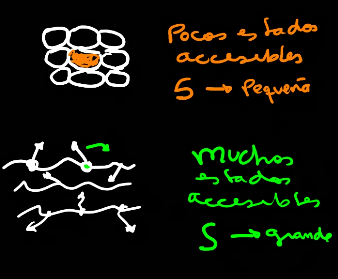 Pocos estados
accesibles
S → Pequeña
muchos
estados
accesibles
S → grande